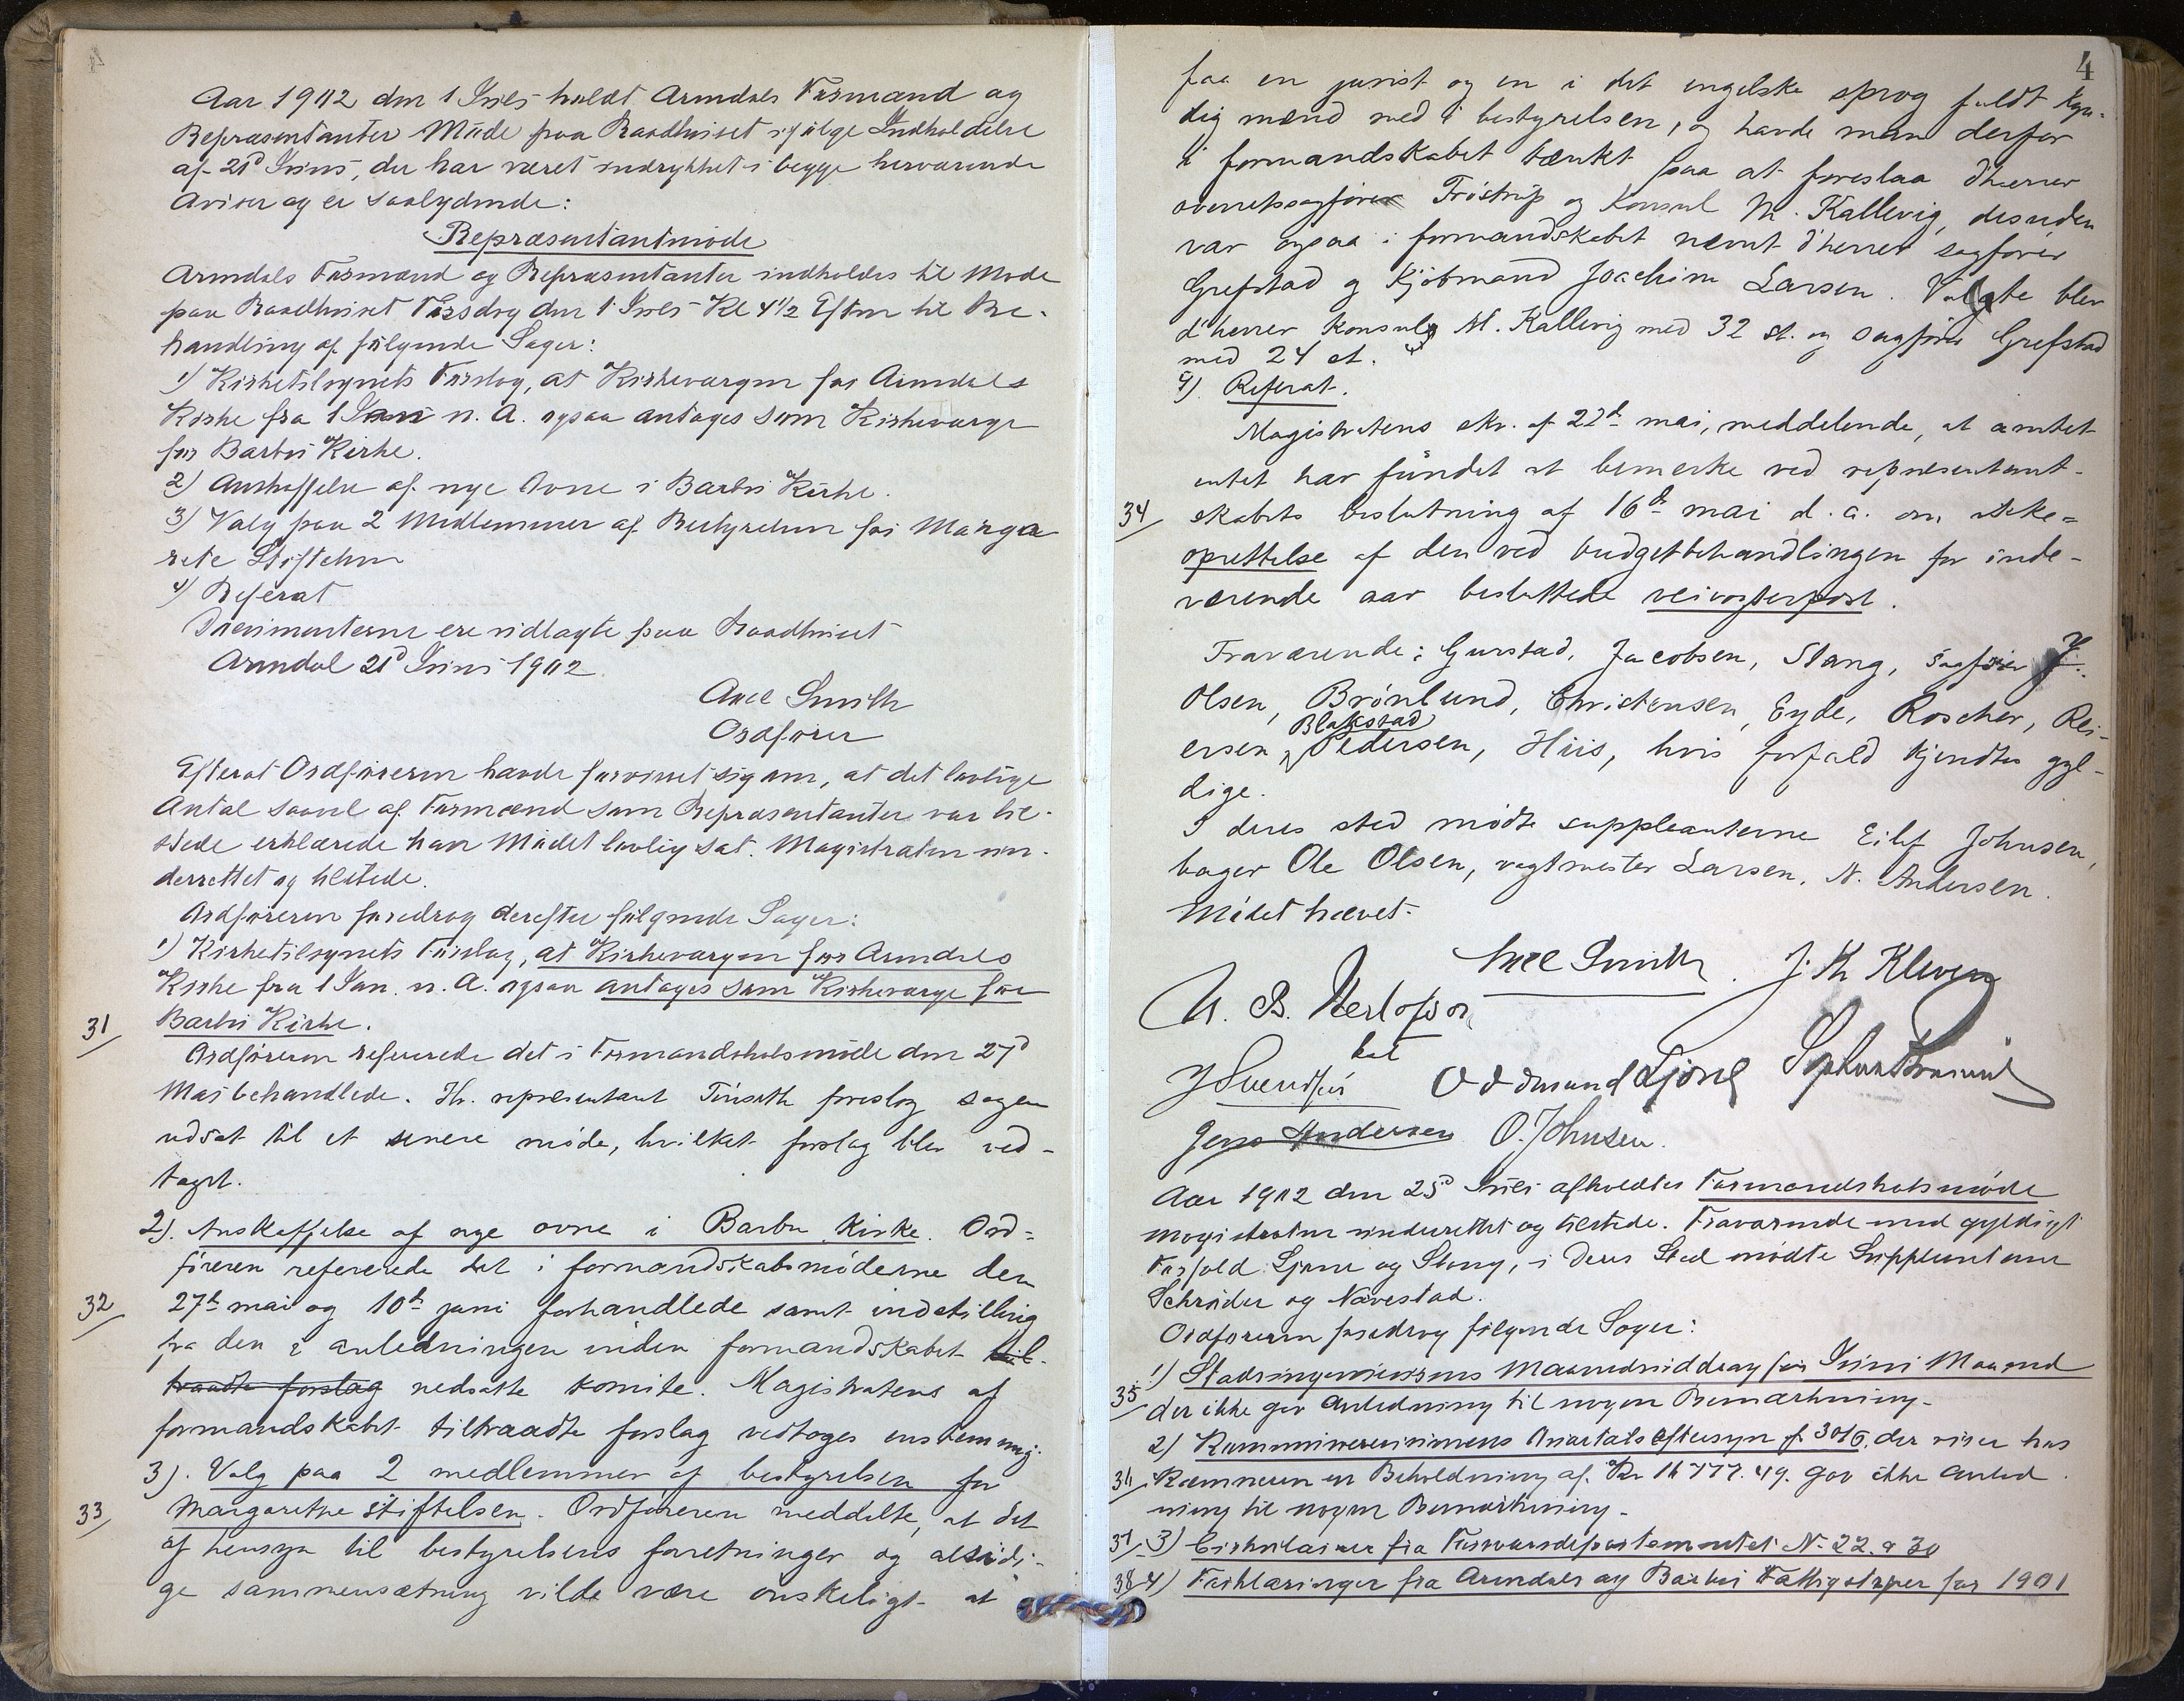 Aar 1902 den 1 Juli holdt Arendals Formænd og
Repræsentanter Møde paa Raadhuset ifølge Indkaldelse
af 21d Juni, der har været indrykket i begge herværende
Aviser og er saalydende:
Repræsentantmøde
Arendals Formænd og Repræsentanter indkaldes til Møde
paa Raadhuset Tirsdag den 1 Juli Kl 4 1/2 Eftm til Be-
handling af følgende Sager:
1) Kirketilsynets Forslag, at Kirkevergen for Arendals
Kirke fra 1 Jan n. A. ogsaa antages som Kirkeverge
for Barbu Kirke.
2) Anskaffelse af nye Ovne i Barbu Kirke.
3) Valg paa 2 Medlemmer af Bestyrelsen for Marga
rete Stiftelsen
4) Referat
Dokumenterne ere udlagte paa Raadhuset
Arendal 21d Juni 1902.
Axel Smith
Ordfører
Efterat Ordføreren havde forvisset sig om, at det lovlige
Antal saavel af Formænd som Repræsentanter var til-
stede erklærede han Mødet lovlig sat. Magistraten un-
derrettet og tilstede.
Ordføreren foredrog derefter følgende Sager:
1) Kirketilsynets Forslag, at Kirkevergen for Arendals
Kirke fra 1 Jan. n. A. ogsaa antages som Kirkeverge for
31/ Barbu Kirke.
Ordføreren refererede det i Formandskabsmøde den 27d
Mai behandlede. Hr. repræsentant Tinseth foreslog sagen
udsat til et senere møde, hvilket forslag blev ved-
taget.
2). Anskaffelse af nye ovne i Barbu Kirke. Ord-
føreren refererede det i formandskabsmøderne den
32/ 27de mai og 10de juni forhandlede samt indstilling
fra den i anledningen inden formandskabet til-
traadte forslag nedsatte komite. Magistratens af
formandskabet tiltraadte forslag vedtoges enstemmig.
3). Valg paa 2 medlemmer af bestyrelsen for
33/ Margarethe stiftelsen. Ordføreren meddelte, at det
af hensyn til bestyrelsens forretninger og alsidi-
ge sammensætning vilde være ønskeligt at
4
faa en jurist og en i det engelske sprog fuldt kyn-
dig mænd med i bestyrelsen, og havde man derfor
i formandskabet tænkt paa at foreslaa d'herrer
overretssagfører Trøstrup og konsul M. Kallevig, desuden
var ogsaa i formandskabet nævnt d'herrer sagfører
Grefstad og Kjøbmand Joachim Larsen. Valgte blev
d'herrer konsul M. Kallevig med 32 st. og sagfører Grefstad
med 24 st.
4). Referat.
Magistratens skr. af 22d mai, meddelende, at amtet
intet har fundet at bemerke ved repræsentant-
34/ skabets beslutning af 16de mai d. a. om ikke-
oprettelse af den ved budgetbehandlingen for inde-
værende aar besluttede veivogterpost.
Fraværende: Gurstad, Jacobsen, Stang, sagfører J.
Olsen, Brønlund, Christensen, Eyde, Roscher, Rei-
Blakstad
ersen, Pedersen, Hiis, hvis forfald kjendtes gyl-
dige.
I deres sted mødte suppleanterne Eilif Johnsen,
bager Ole Olsen, vagtmester Larsen, N. Andersen.
Mødet hævet.
Axel Smith. J. Kr Kleven
N. B. Herlofson
J Svendsen Oddmund Ljone
Jens Andersen O. Johnsen.
Aar 1902 den 25d Juli afholdtes Formandskabsmøde
Magistraten underrettet og tilstede. Fraværende med gyldigt
Forfald Ljone og Stang, i deres Sted mødte Suppleanterne
Schrøder og Nævestad.
Ordføreren foredrog følgende Sager:
1) Stadsingeniørens Maanedsuddrag for Juni Maaned
35/ der ikke gav Anledning til nogen Bemærkning.
2) Kommunerevisionens Kvartalseftersyn pr 30/6, der viser hos
36/ Kæmneren en Beholdning af Kr 16777.49. gav ikke Anled
ning til nogen Bemærkning.
37/ 3) Cirkulærer fra Forsvarsdepartementet No 22 & 30
38 4) Forklaringer fra Arendals og Barbu Fattigstyrer for 1901